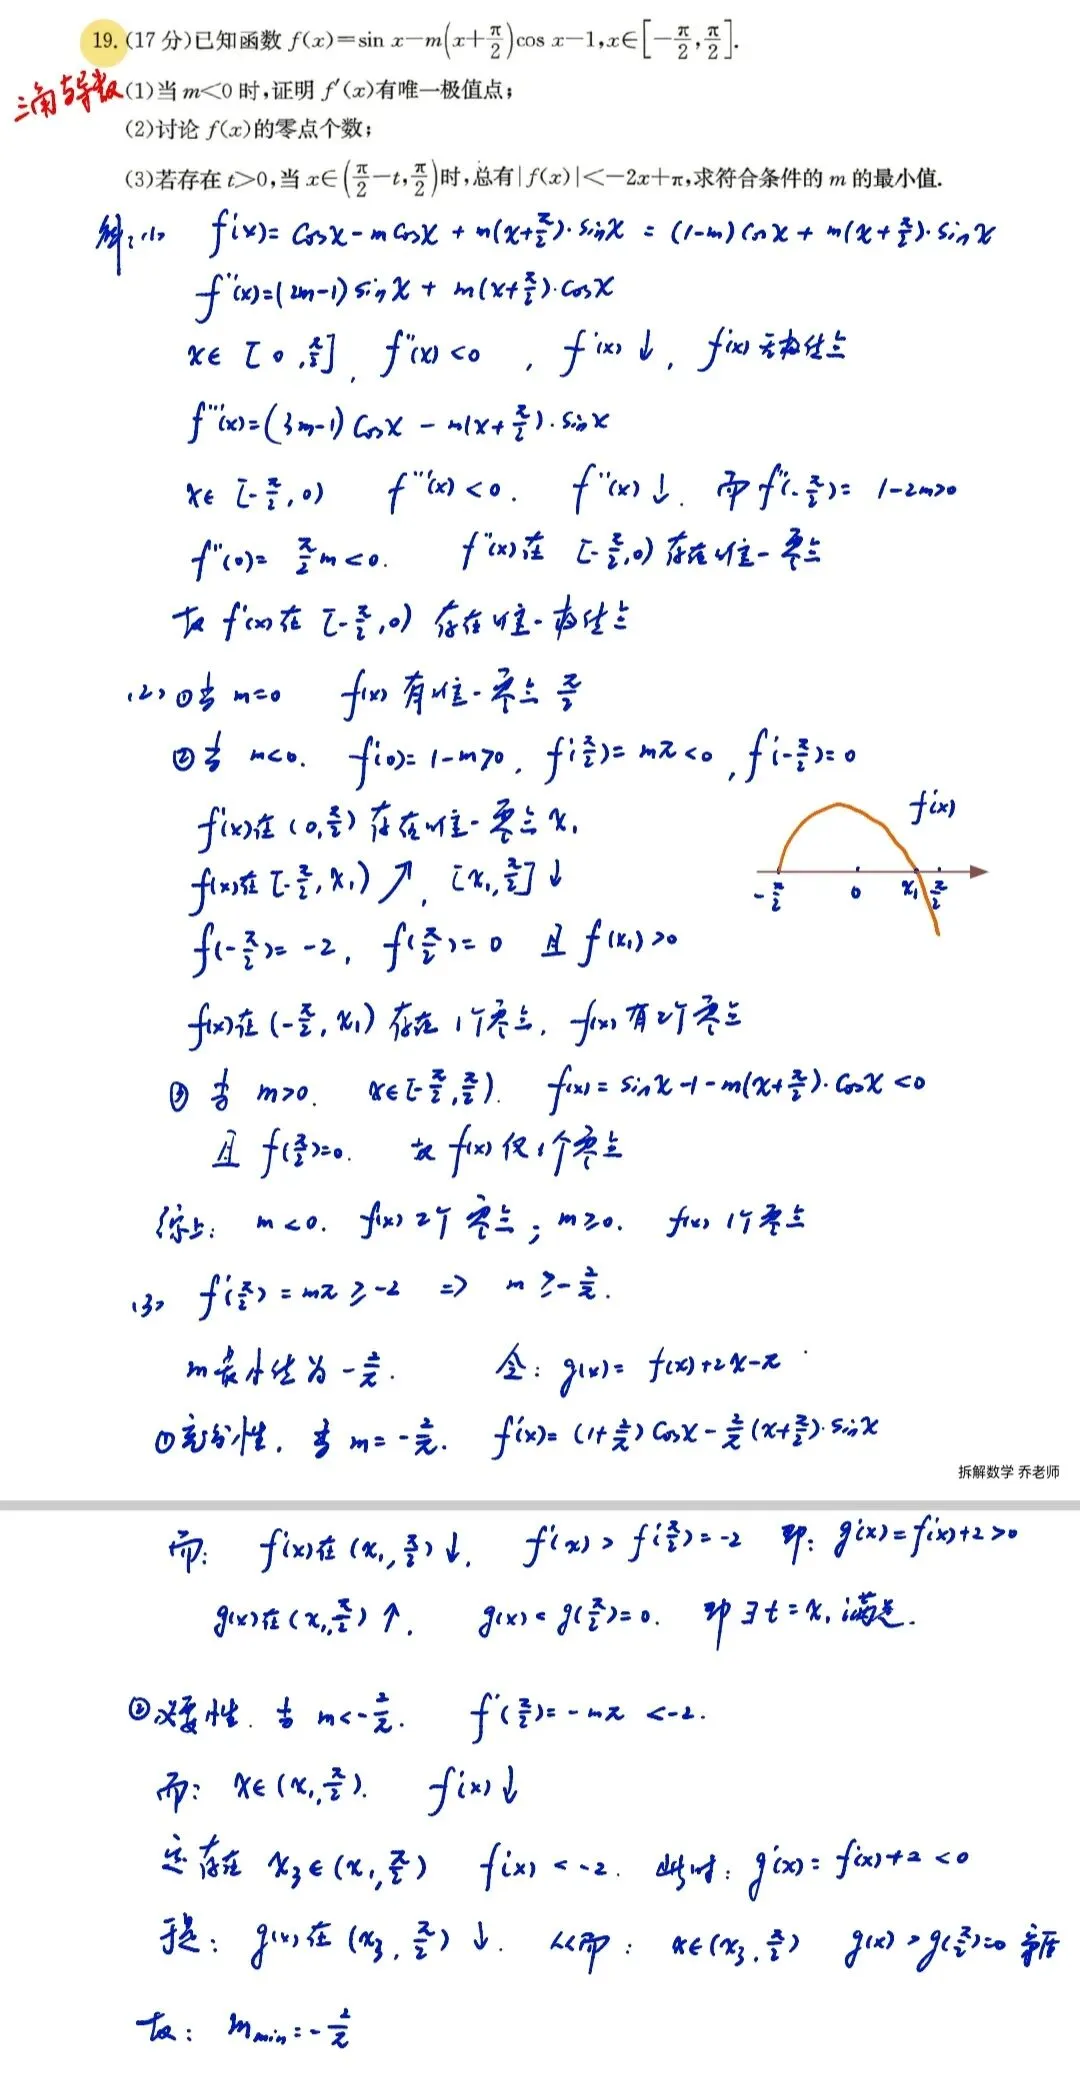 19. (17分)已知函数 f(x)=sin x-m(x+π/2)cos x-1,x∈[-π/2,π/2].
三角与导数
(1)当m<0时,证明 f′(x)有唯一极值点;
(2)讨论 f(x)的零点个数;
(3)若存在 t>0,当 x∈(π/2-t,π/2)时,总有|f(x)|<-2x+π,求符合条件的 m 的最小值.
解:(1) f'(x)= cosx-mcosx + m(x+π/2)·sinx = (1-m)cosx + m(x+π/2)·sinx
f''(x)=(2m-1)sinx + m(x+π/2)·cosx
x∈[0,π/2], f''(x)<0, f'(x)↓, f'(x)无极值点
f'''(x)=(3m-1)cosx - m(x+π/2)·sinx
x∈[-π/2,0) f'''(x)<0. f''(x)↓. 而f''(-π/2)= 1-2m>0
f''(0)= π/2 m<0. f''(x)在[-π/2,0)存在唯一零点
故 f'(x)在[-π/2,0)存在唯一极值点
(2) ①当 m=0 f(x)有唯一零点 π/2
②当 m<0. f'(0)=1-m>0, f'(π/2)= mπ<0, f'(-π/2)=0
f'(x)在(0,π/2)存在唯一零点x₁
f'(x)
f(x)在[-π/2,x₁)↗, [x₁,π/2]↓
-π/2 0 x₁ π/2
f(-π/2)=-2, f(π/2)=0 且 f(x₁)>0
f(x)在(-π/2,x₁)存在1个零点, f(x)有2个零点
③当 m>0. x∈[-π/2,π/2). f(x)= sinx-1-m(x+π/2)·cosx<0
且 f(π/2)=0. 故 f(x)仅1个零点
综上: m<0. f(x) 2个零点; m≥0. f(x) 1个零点
(3) f'(π/2)=mπ≥-2 => m≥-2/π.
m最小值为-2/π. 令: g(x)= f(x)+2x-π
①充分性. 当m=-2/π. f'(x)= (1+2/π)cosx-2/π(x+π/2)·sinx
拆解数学 乔老师
而: f'(x)在(x₁,π/2)↓. f'(x)>f'(π/2)=-2 即: g'(x)=f'(x)+2>0
g(x)在(x₁,π/2)↑. g(x)<g(π/2)=0. 即∃t=x₁满足.
②必要性. 当 m<-2/π. f'(π/2)=-mπ<-2.
而: x∈(x₁,π/2). f'(x)↓
必存在 x₃∈(x₁,π/2) f'(x)<-2. 此时: g'(x)=f'(x)+2<0
于是: g(x)在(x₃,π/2)↓. 从而: x∈(x₃,π/2) g(x)>g(π/2)=0 矛盾
故: m min=-2/π